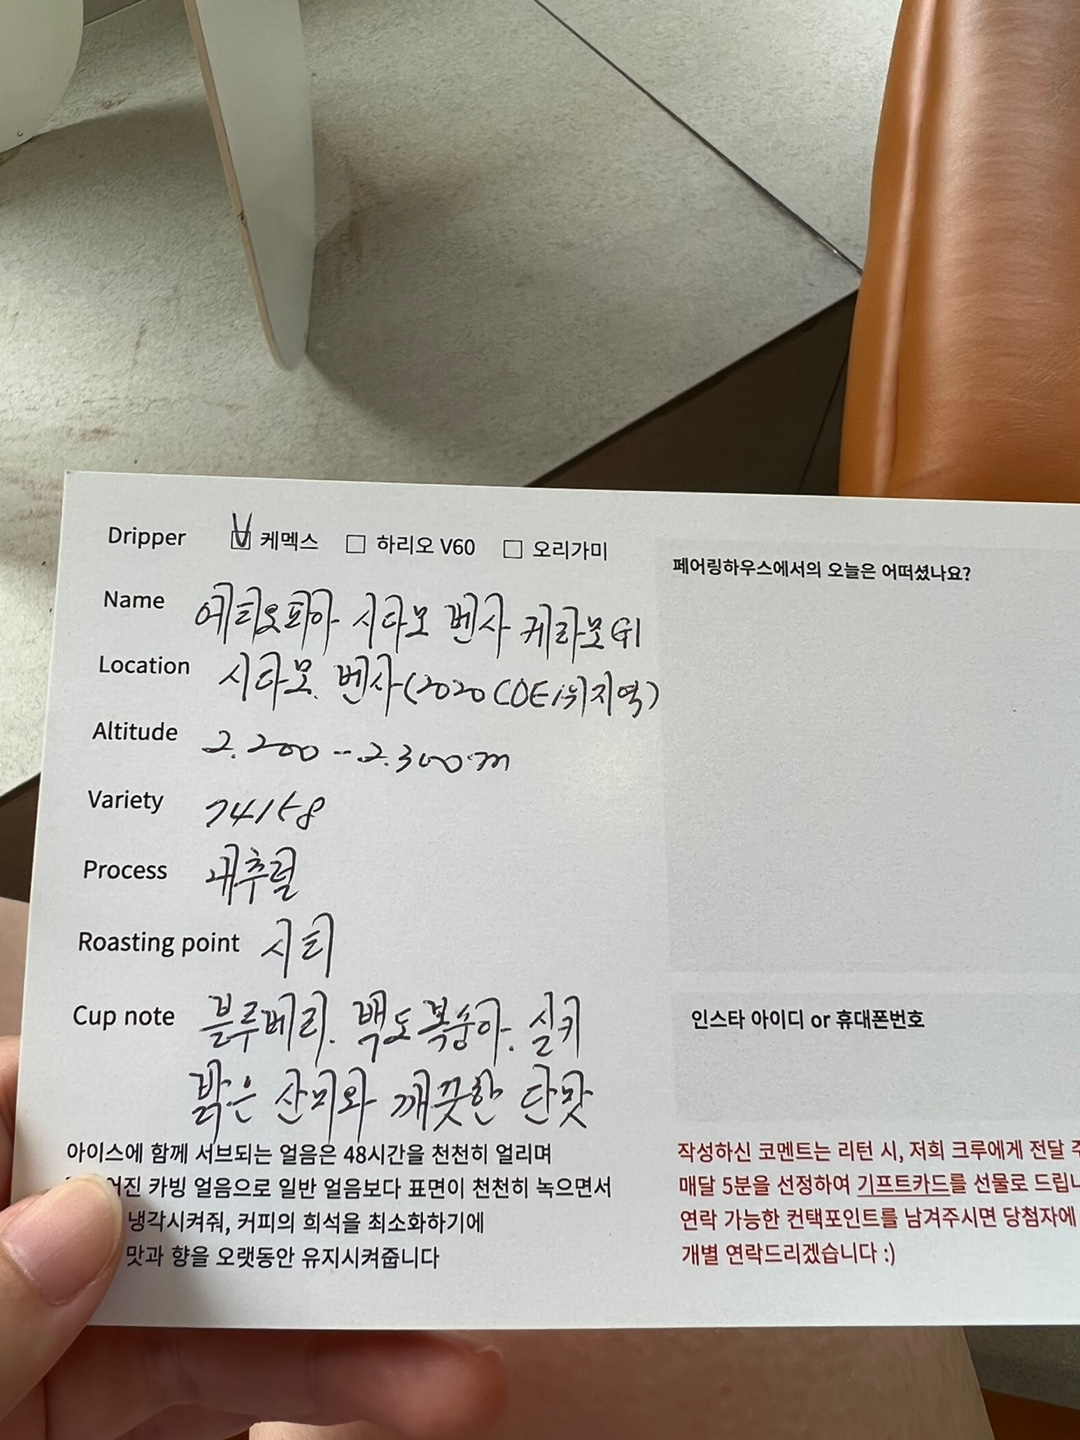 Dripper ☑ 케멕스 ☐ 하리오 V60 ☐ 오리가미
Name 에티오피아 시다모 벤사 케라모 G1
Location 시다모. 벤사(2020 COE 1위 지역)
Altitude 2.200--2.300m
Variety 74158
Process 내추럴
Roasting point 시티
Cup note 블루베리. 백도복숭아. 실키
밝은 산미와 깨끗한 단맛
아이스에 함께 서브되는 얼음은 48시간을 천천히 얼리며
카빙 얼음으로 일반 얼음보다 표면이 천천히 녹으면서
냉각시켜줘, 커피의 희석을 최소화하기에
맛과 향을 오랫동안 유지시켜줍니다
페어링하우스에서의 오늘은 어떠셨나요?
인스타 아이디 or 휴대폰번호
작성하신 코멘트는 리턴 시, 저희 크루에게 전달
매달 5분을 선정하여 기프트카드를 선물로
연락 가능한 컨택포인트를 남겨주시면 당첨자에
개별 연락드리겠습니다 :)